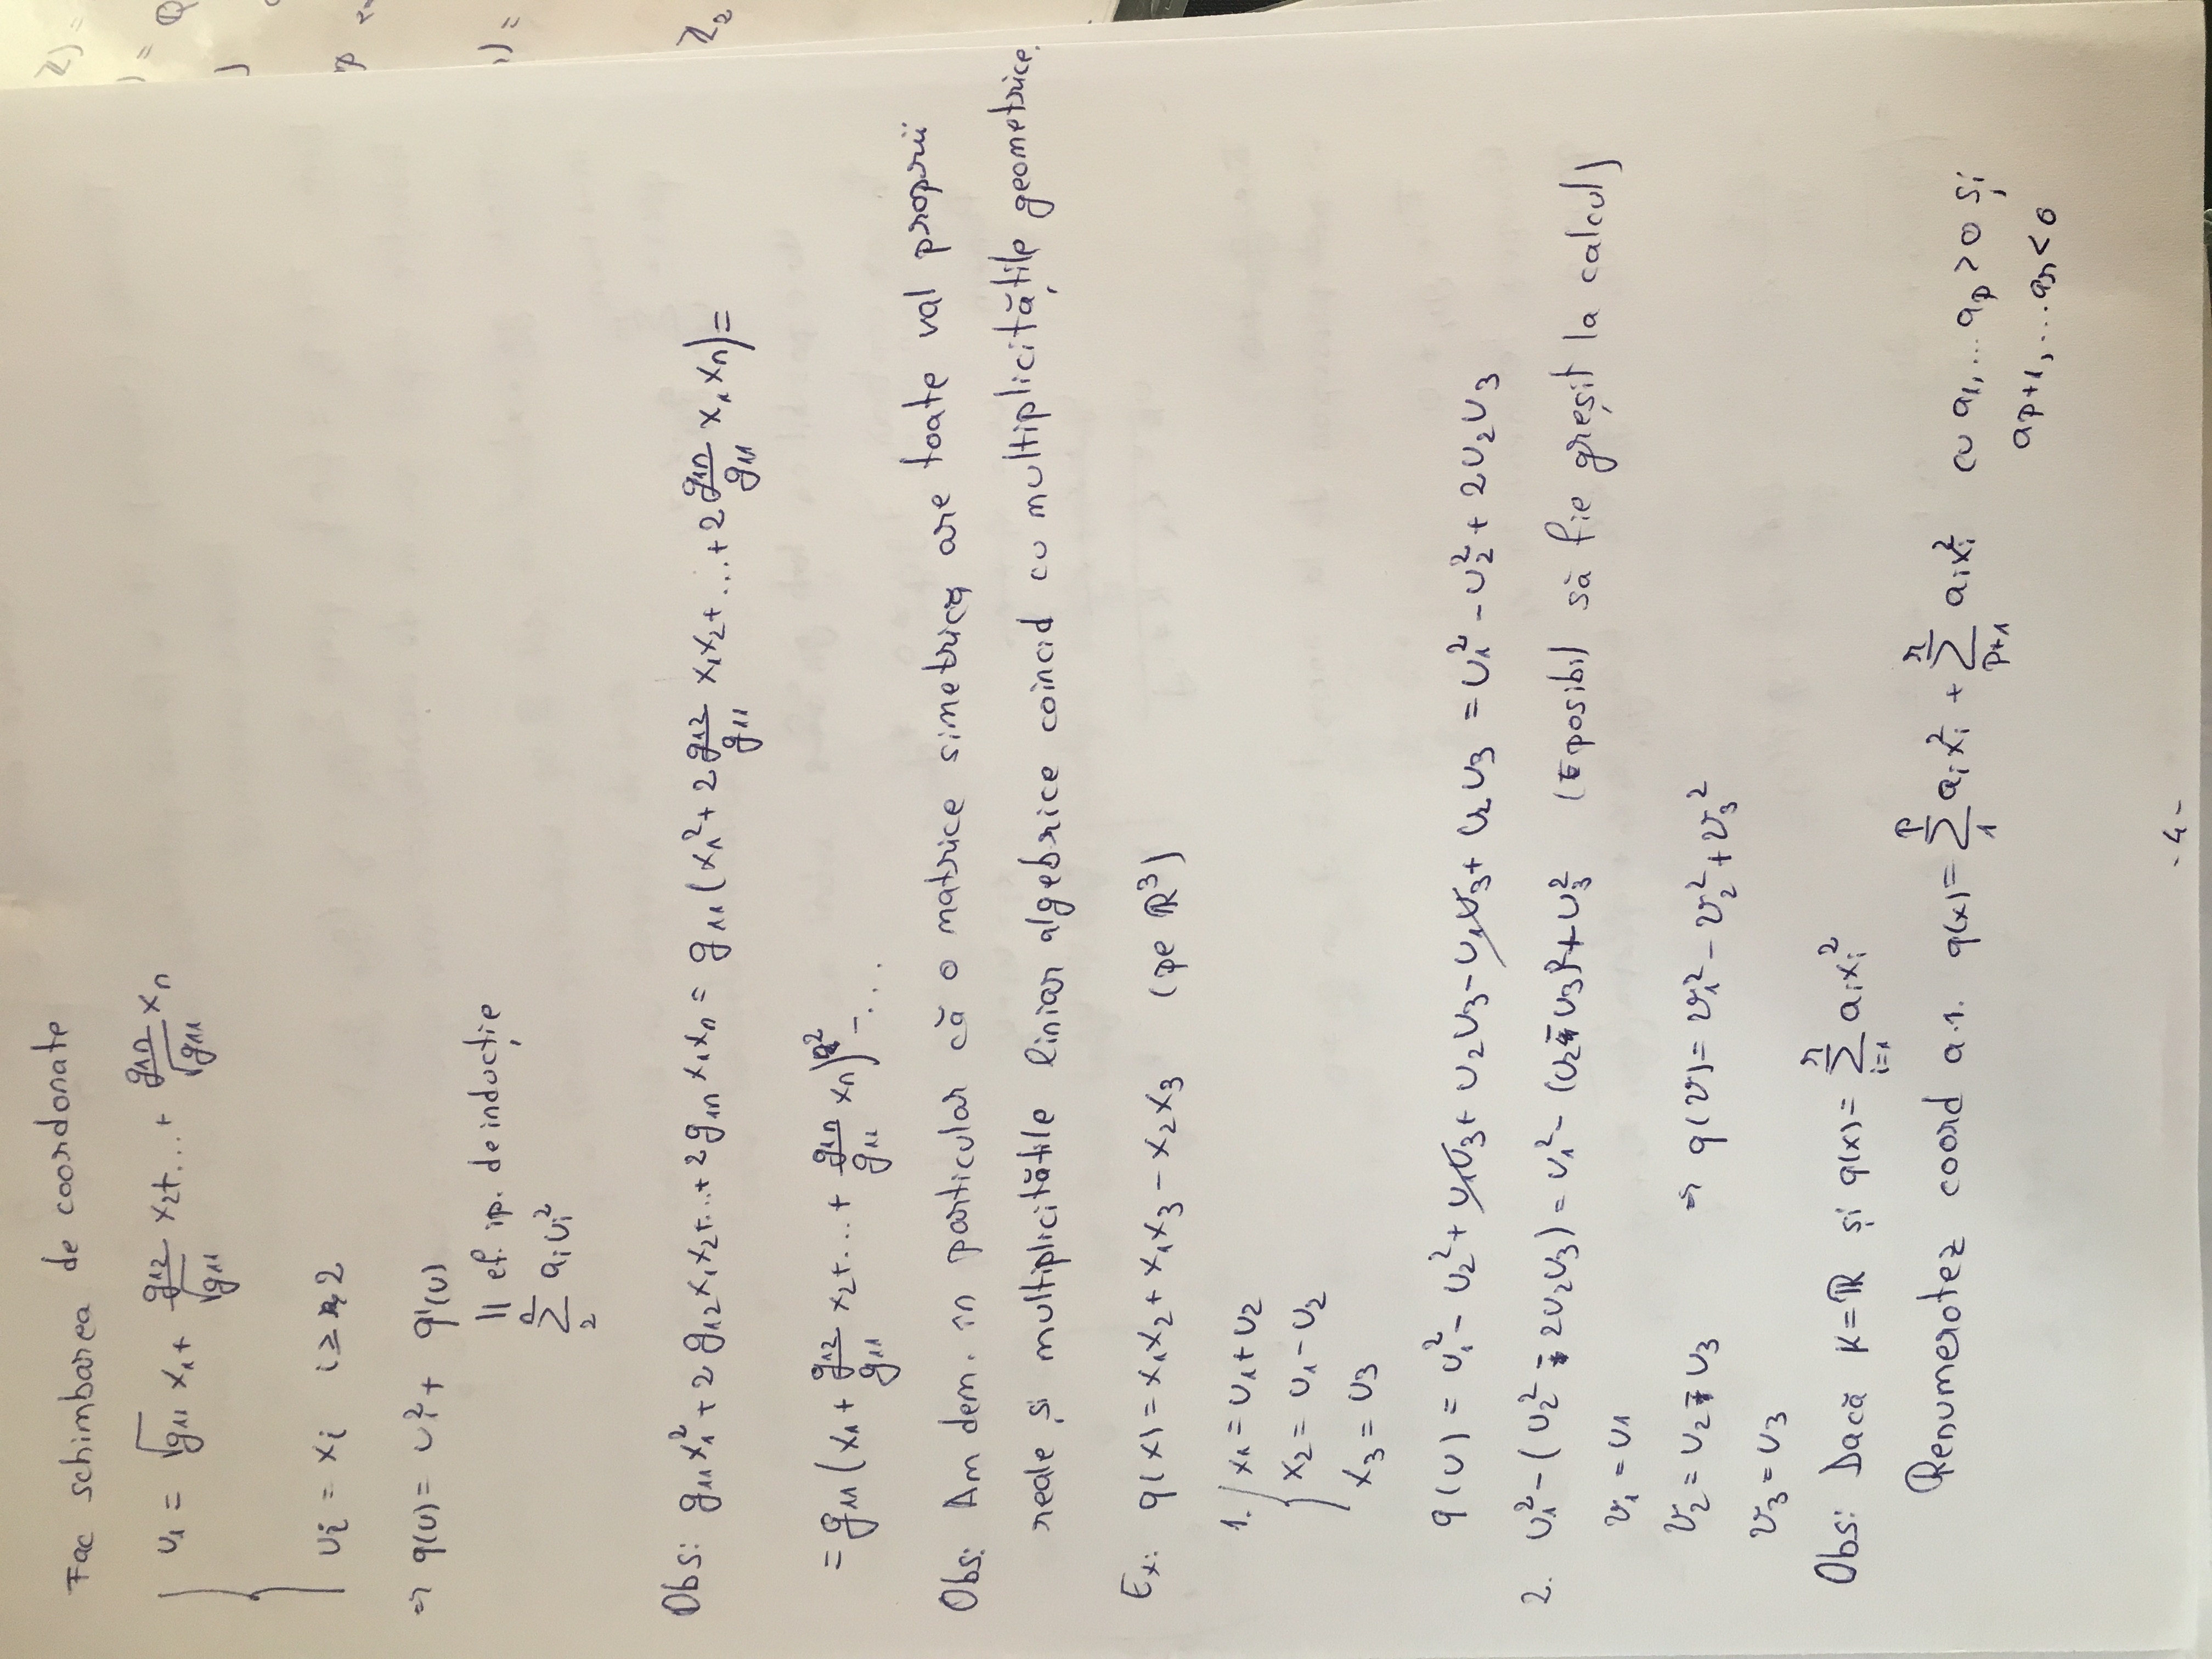 Fac schimbarea de coordonate
u₁ = √g₁₁ x₁ + g₁₂/√g₁₁ x₂ + ... + g₁ₙ/√g₁₁ xₙ
uᵢ = xᵢ i ≥ 2
⇒ q(u) = u₁² + q'(u)
|| cf. ip. de inducție
∑₂ⁿ aᵢuᵢ²
Obs: g₁₁x₁² + 2g₁₂x₁x₂ + ... + 2g₁ₙx₁xₙ = g₁₁(x₁² + 2 g₁₂/g₁₁ x₁x₂ + ... + 2 g₁ₙ/g₁₁ x₁xₙ) =
= g₁₁(x₁ + g₁₂/g₁₁ x₂ + ... + g₁ₙ/g₁₁ xₙ)² - ...
Obs: Am dem. în particular că o matrice simetrică are toate val proprii
reale și multiplicitățile liniar algebrice coincid cu multiplicitățile geometrice.
Ex: q(x) = x₁x₂ + x₁x₃ - x₂x₃ (pe ℝ³)
1. x₁ = u₁ + u₂
x₂ = u₁ - u₂
x₃ = u₃
q(u) = u₁² - u₂² + u₁u₃ + u₂u₃ - u₁u₃ + u₂u₃ = u₁² - u₂² + 2u₂u₃
2. u₁² - (u₂² - 2u₂u₃) = u₁² - (u₂ - u₃)² + u₃² (E posibil să fie greșit la calcul)
v₁ = u₁
v₂ = u₂ - u₃ ⇒ q(v) = v₁² - v₂² + v₃²
v₃ = u₃
Obs: Dacă K = ℝ și q(x) = ∑ᵢ₌₁ʳ aᵢxᵢ²
Renumerotez coord a.î. q(x) = ∑₁ᵖ aᵢxᵢ² + ∑ₚ₊₁ʳ aᵢxᵢ² cu a₁, ... aₚ > 0 și
aₚ₊₁, ... aᵣ < 0
- 4 -